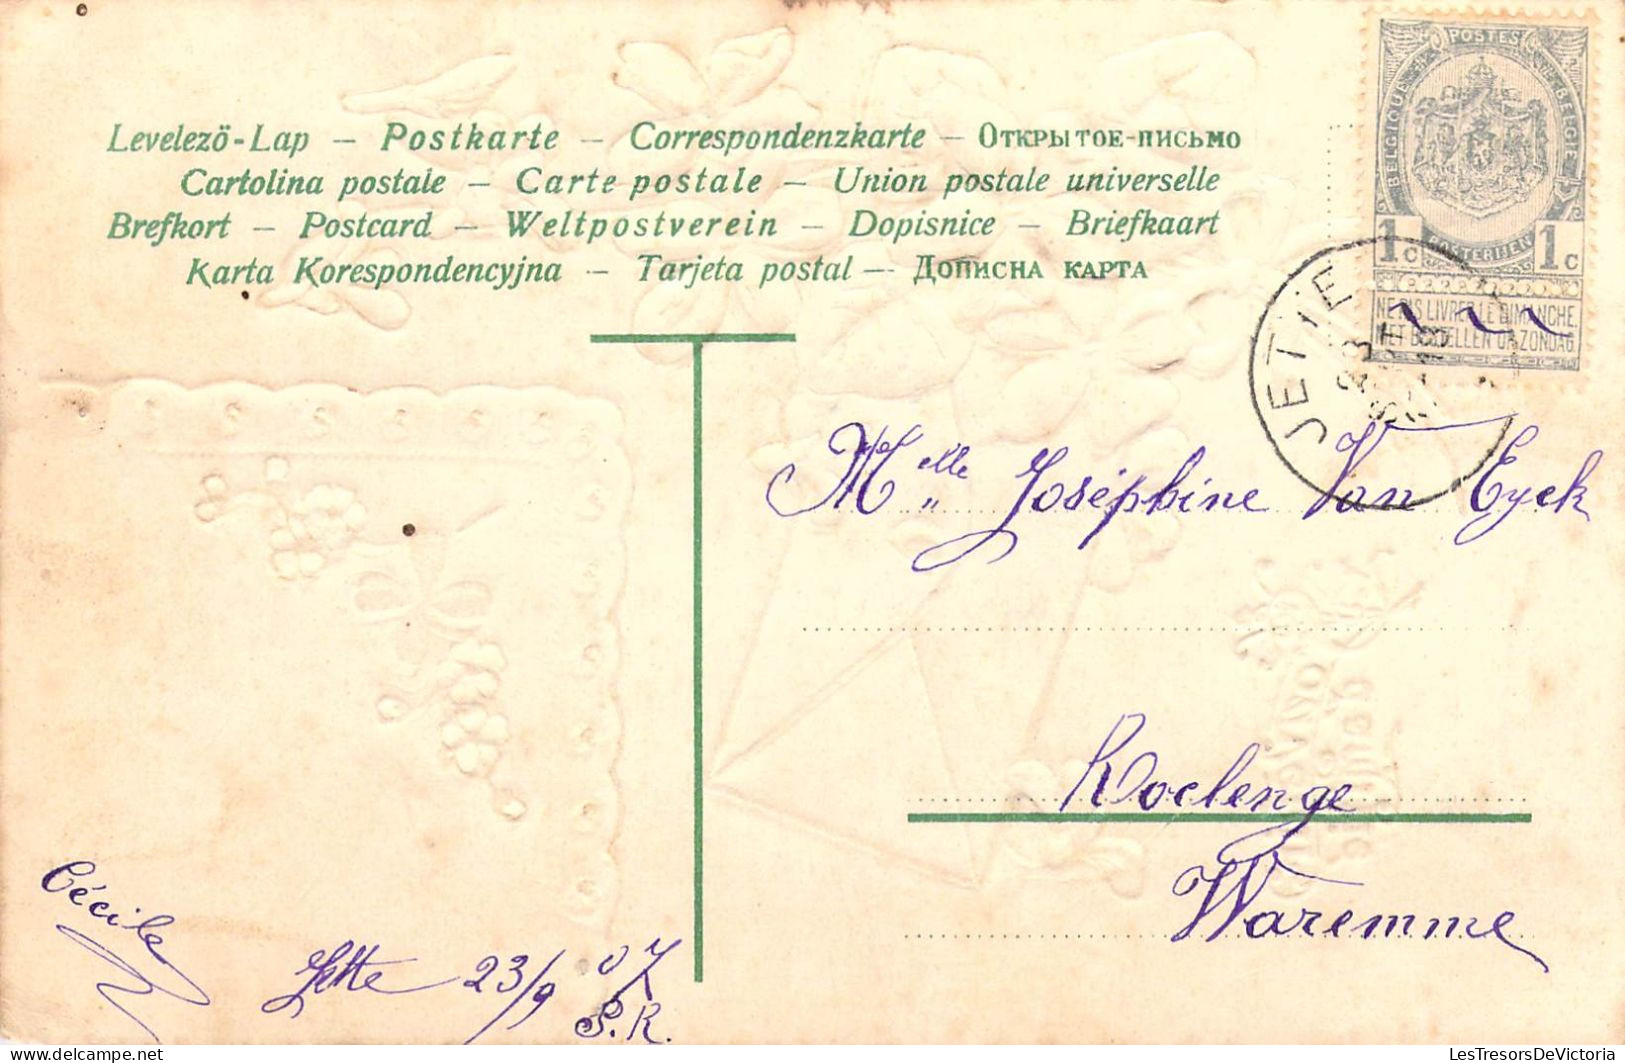 Levelezö-Lap – Postkarte – Correspondenzkarte – Открытое-письмо
Cartolina postale – Carte postale – Union postale universelle
Brefkort – Postcard – Weltpostverein – Dopisnice – Briefkaart
Karta Korespondencyjna – Tarjeta postal – Дописна карта
POSTES
BELGIQUE
BELGIE
POSTERIJEN
1c 1c
NE PAS LIVRER LE DIMANCHE
NIET BESTELLEN OP ZONDAG
JETTE
23
Melle Joséphine Van Eyck
Roclenge
Waremme
Cécile
Jette 23/9 07
P.R.
LesTresorsDeVictoria